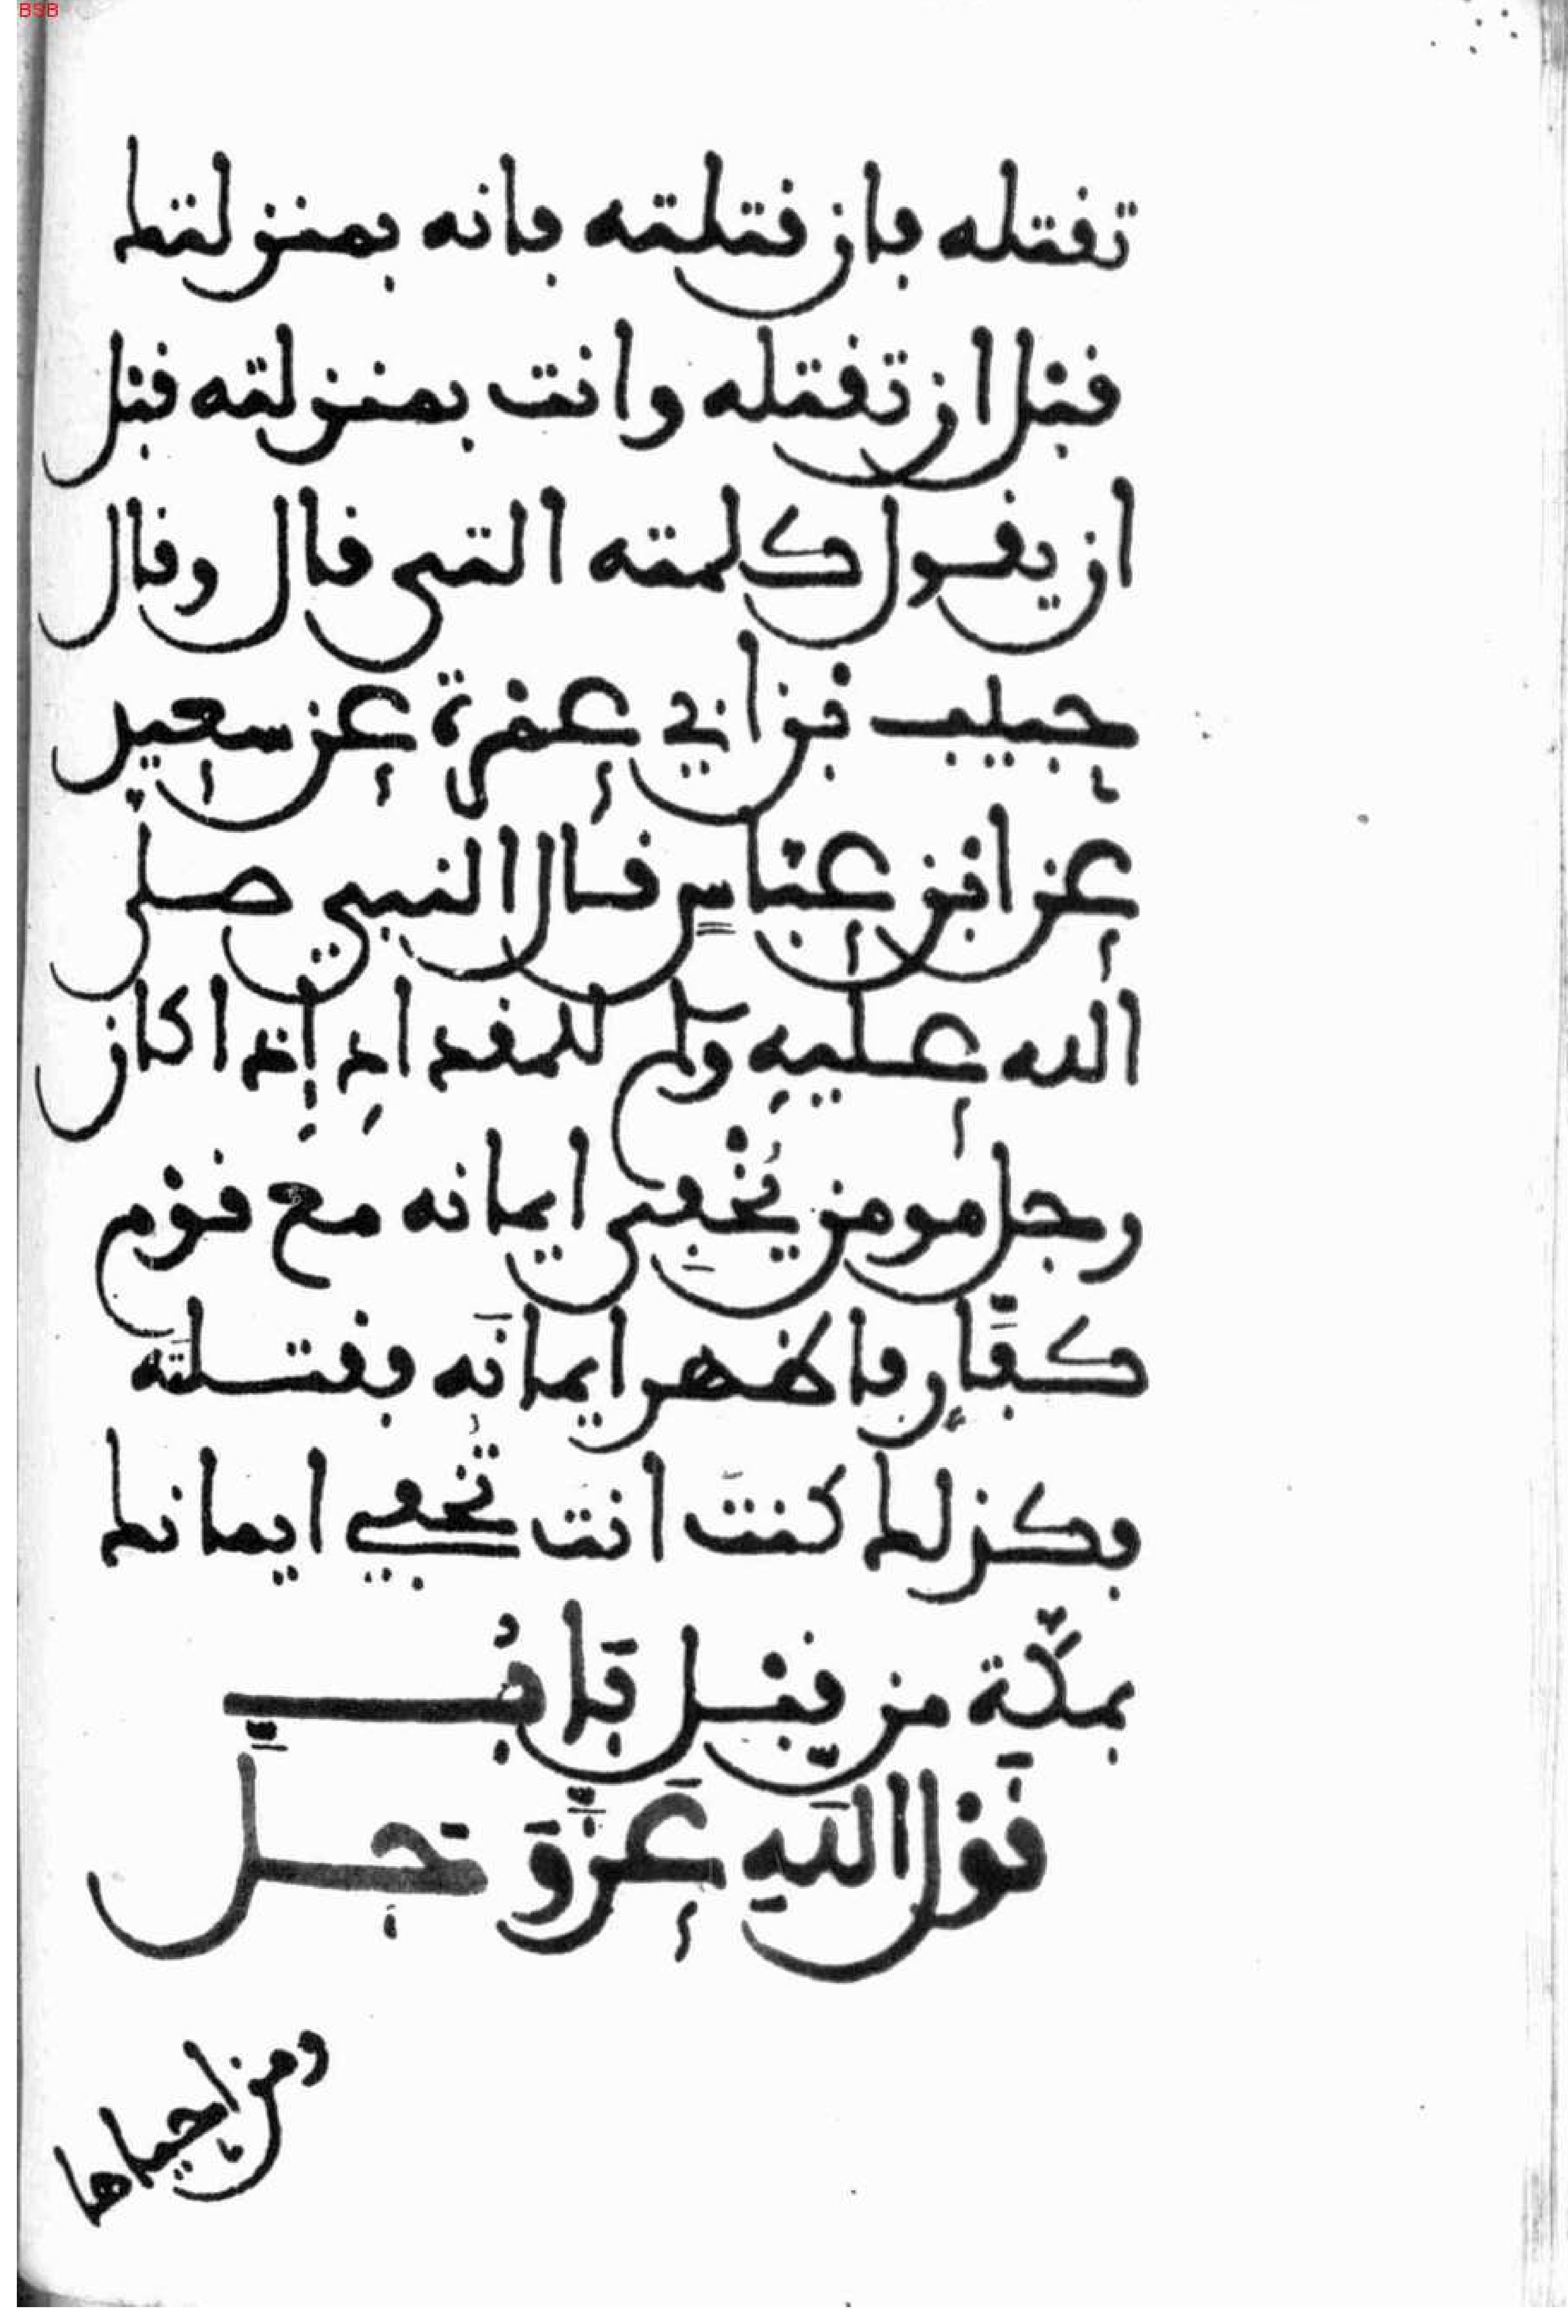 BSB
تقتله فان قتلته فانه بمنزلتك
قبل ان تقتله وانت بمنزلته قبل
ان يقول كلمته التى قال وقال
حبيب بن ابي عمرة عن سعيد
عن ابن عباسٍ قال النبي صلى
الله عليهِ وسلم للمقدادِ إِذا كان
رجل مومن يُخْفِى ايمانه مع قوم
كفَّارٍ فاظهر ايمانَه فقتلتَه
فكذلك كنتَ انت تُخفي ايمانك
بمكّة من قبل بَابُ
قَوْل اللَّهِ عَزَّ وَجَلَّ
ومن احياها